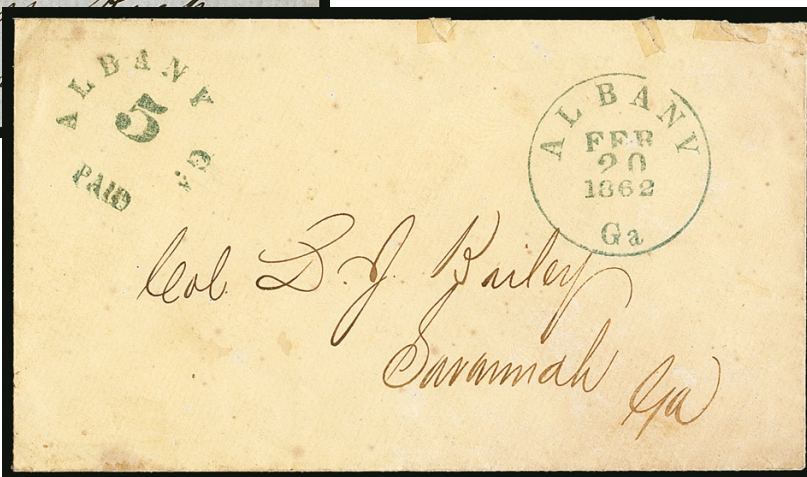 ALBANY Ga
5
PAID
ALBANY
FEB
20
1862
Ga
Col. D. J. Bailey
Savannah Ga